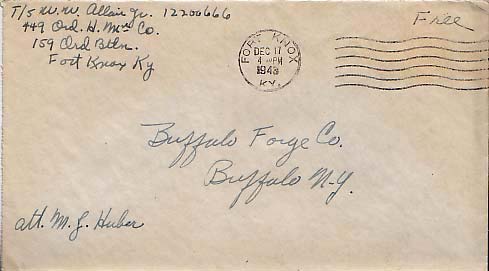 T/5 W.W. Allair Jr. 12200666
449 Ord. H. Mtn Co.
159 Ord Bttn.
Fort Knox Ky
Free
FORT KNOX
DEC 17
4 PM
1943
KY.
Buffalo Forge Co.
Buffalo N.Y.
att. M. J. Huber